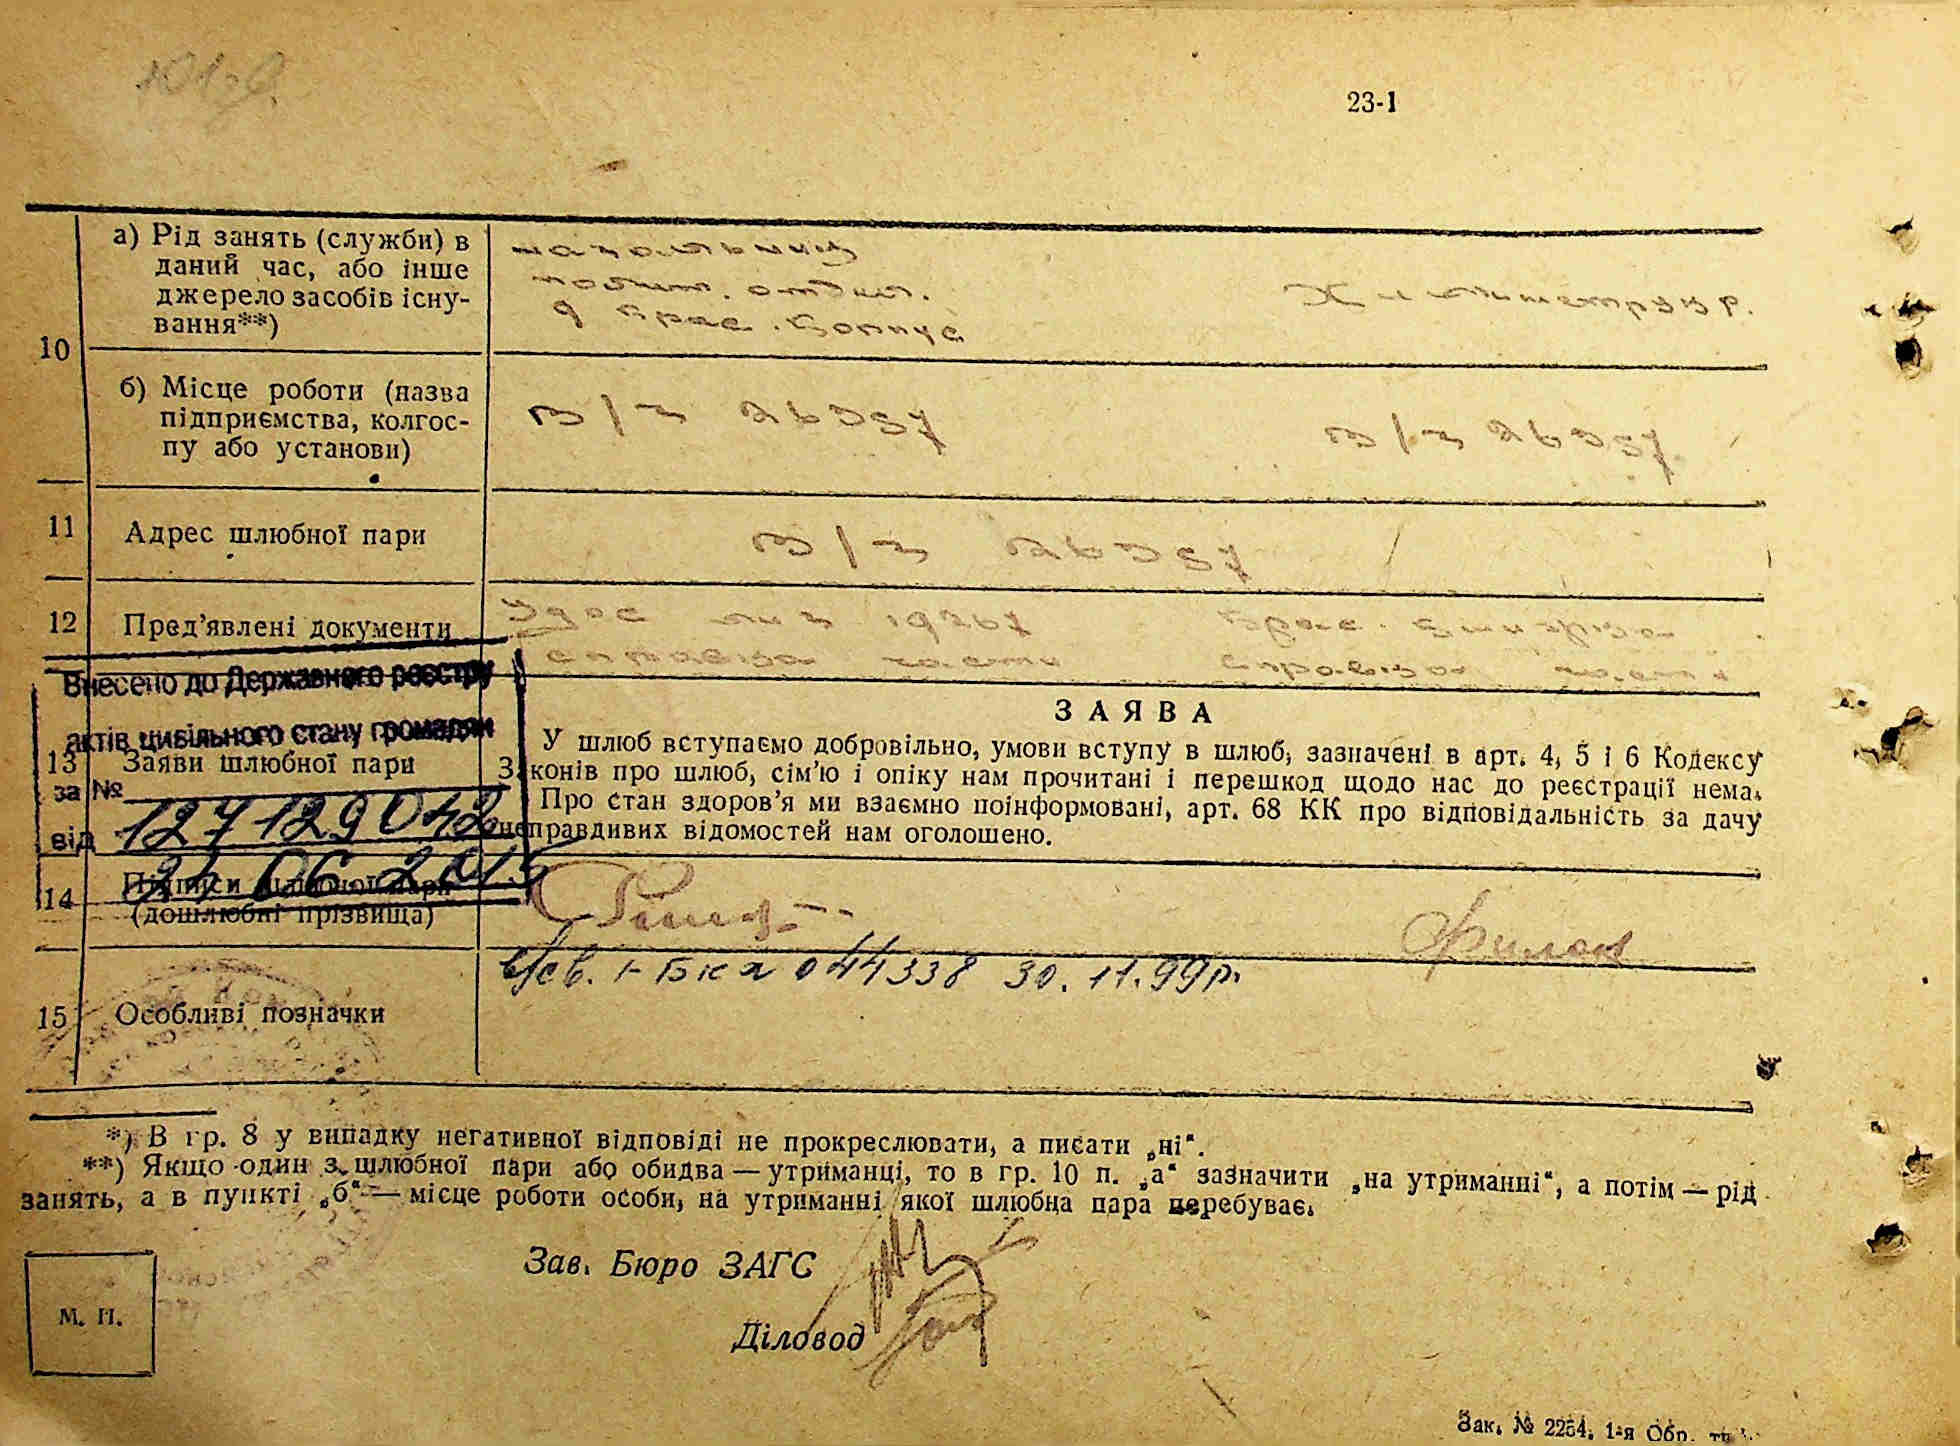 23-1
10
а) Рід занять (служби) в
даний час, або інше
джерело засобів існу-
вання**)
начальник
политотдел.
9 крас. корпус
б) Місце роботи (назва
підприємства, колгос-
пу або установи)
п/п
п/п
11
Адрес шлюбної пари
п/п
12
Пред’явлені документи
Удос
справка части
справка части
Внесено до Державного реєстру
актів цивільного стану громадян
за №
127129042
від
24 06 2015
13
Заяви шлюбної пари
ЗАЯВА
У шлюб вступаємо добровільно, умови вступу в шлюб, зазначені в арт. 4, 5 і 6 Кодексу
Законів про шлюб, сім’ю і опіку нам прочитані і перешкод щодо нас до реєстрації нема.
Про стан здоров’я ми взаємно поінформовані, арт. 68 КК про відповідальність за дачу
неправдивих відомостей нам оголошено.
14
Підписи шлюбної пари
(дошлюбні прізвища)
св. І-БК 044338 30.11.99р.
15
Особливі позначки
*) В гр. 8 у випадку негативної відповіді не прокреслювати, а писати „ні“.
**) Якщо один з шлюбної пари або обидва — утриманці, то в гр. 10 п. „а“ зазначити „на утриманні“, а потім — рід
занять, а в пункті „б“ — місце роботи особи, на утриманні якої шлюбна пара перебуває.
Зав. Бюро ЗАГС
Діловод
М. П.
Зак. № 2254. 1-я Обр.